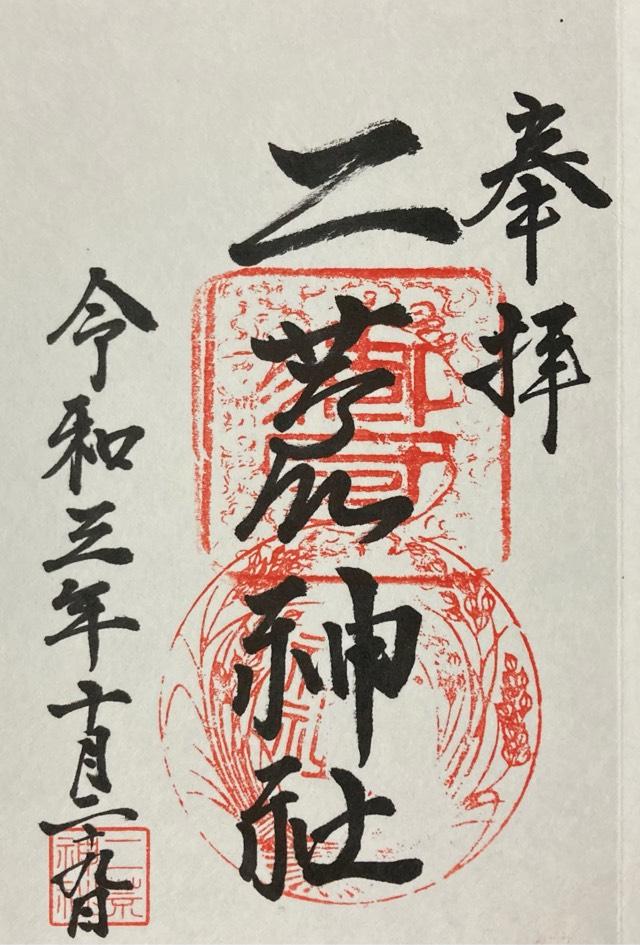 奉拝
二荒神社
令和三年十月二十九日
二荒
神社